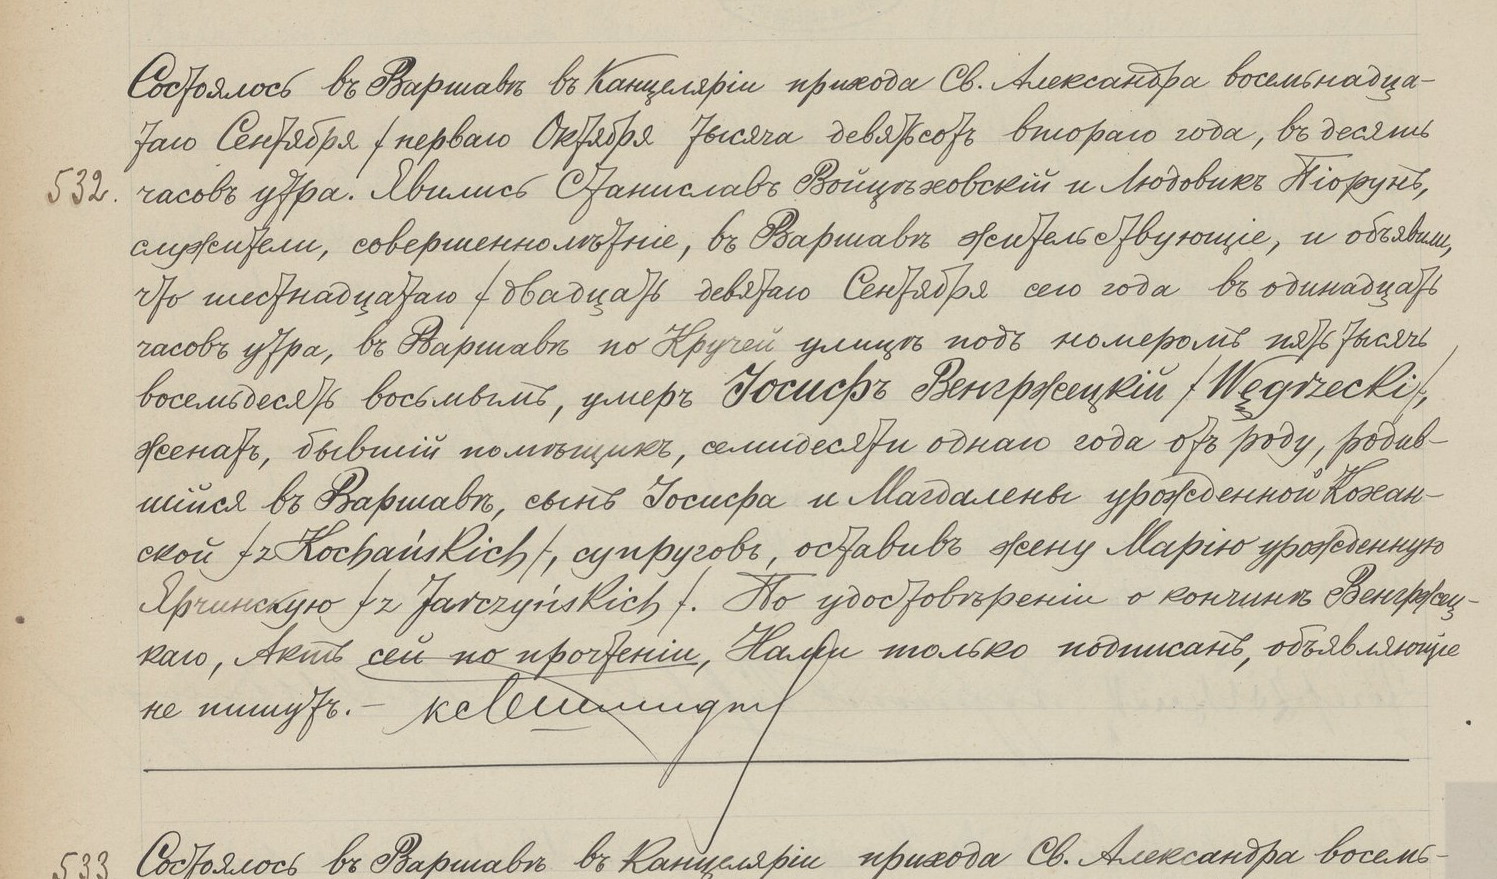 Состоялось въ Варшавѣ въ Канцеляріи прихода Св. Александра восемьнадца-
таго Сентября / перваго Октября тысяча девятьсотъ втораго года, въ десять
532. часовъ утра. Явились Станиславъ Войцѣховскій и Людовикъ Піорунъ,
служители, совершеннолѣтніе, въ Варшавѣ жительствующіе, и объявили,
что шестнадцатаго / двадцать девятаго Сентября сего года въ одинадцать
часовъ утра, въ Варшавѣ по Кручей улицѣ подъ номеромъ пять тысячъ
восемьдесять восьмымъ, умеръ Іосифъ Венгржецкій / Węgrzecki /,
женатъ, бывшій помѣщикъ, семидесяти однаго года отъ роду, родив-
шійся въ Варшавѣ, сынъ Іосифа и Магдалены урожденной Кохан-
ской / z Kochańskich /, супруговъ, оставивъ жену Марію урожденную
Ярчинскую / z Jarczyńskich /. По удостовѣреніи о кончинѣ Венгржец-
каго, Актъ сей по прочтеніи, Нами только подписанъ, объявляющіе
не пишутъ. –
533 Состоялось въ Варшавѣ въ Канцеляріи прихода Св. Александра восемь-